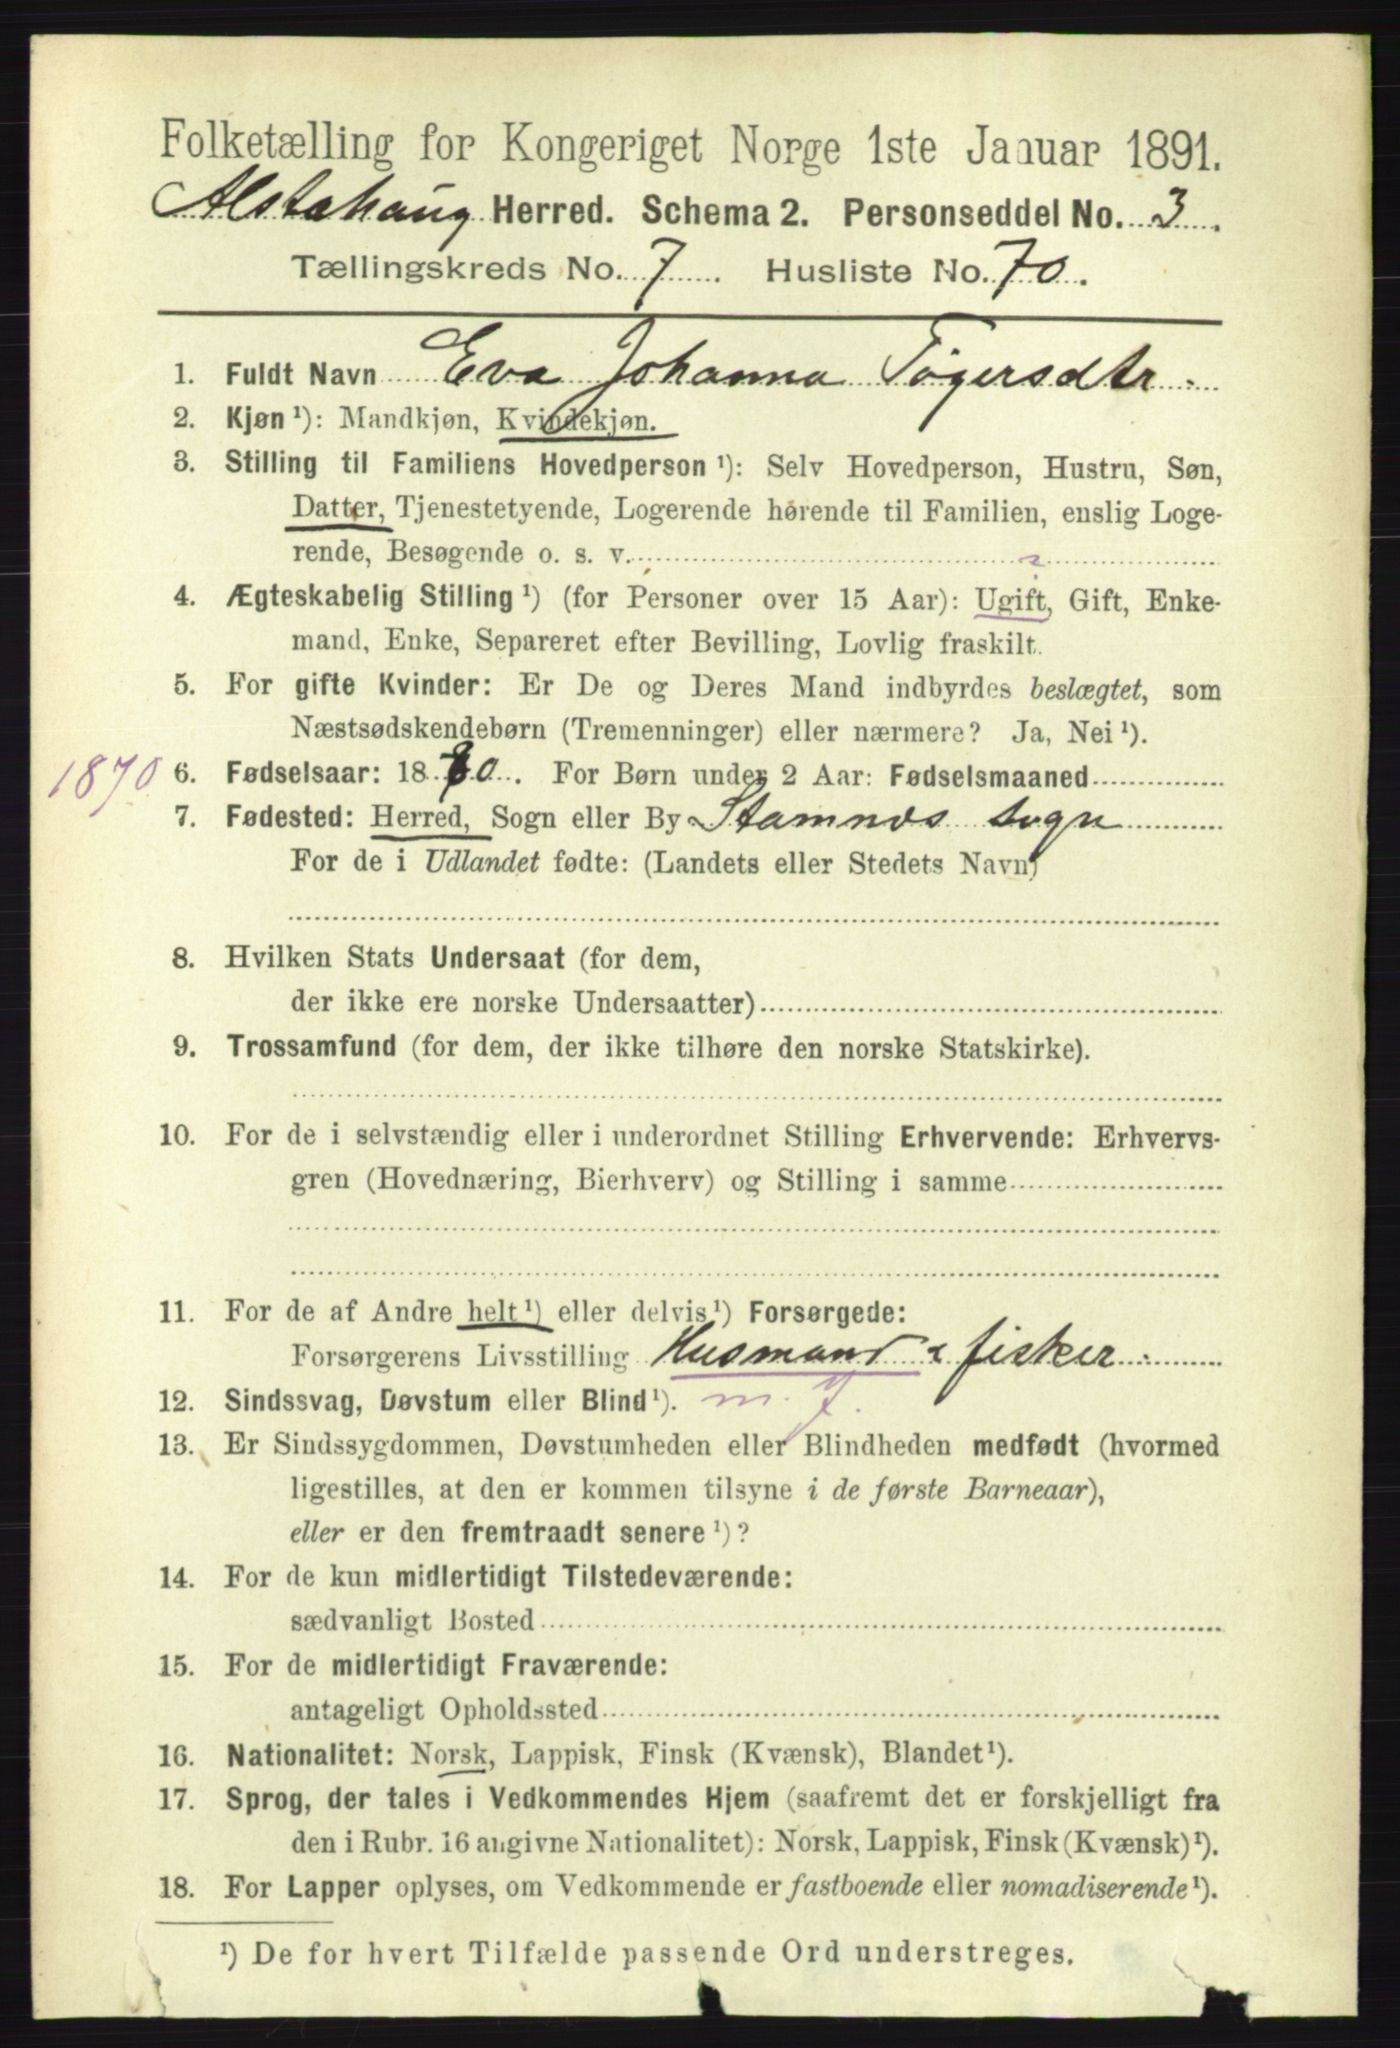 Folketælling for Kongeriget Norge 1ste Januar 1891.
Alstahaug Herred. Schema 2. Personseddel No. 3.
Tællingskreds No. 7 Husliste No. 70.
1. Fuldt Navn Eva Johanna Tøgersdtr.
2. Kjøn ¹): Mandkjøn, Kvindekjøn.
3. Stilling til Familiens Hovedperson ¹): Selv Hovedperson, Hustru, Søn,
Datter, Tjenestetyende, Logerende hørende til Familien, enslig Loge-
rende, Besøgende o. s. v.
4. Ægteskabelig Stilling ¹) (for Personer over 15 Aar): Ugift, Gift, Enke-
mand, Enke, Separeret efter Bevilling, Lovlig fraskilt.
5. For gifte Kvinder: Er De og Deres Mand indbyrdes beslægtet, som
Næstsødskendebørn (Tremenninger) eller nærmere? Ja, Nei ¹).
1870 6. Fødselsaar: 1870. For Børn under 2 Aar: Fødselsmaaned
7. Fødested: Herred, Sogn eller By Stamnes sogn
For de i Udlandet fødte: (Landets eller Stedets Navn)
8. Hvilken Stats Undersaat (for dem,
der ikke ere norske Undersaatter)
9. Trossamfund (for dem, der ikke tilhøre den norske Statskirke).
10. For de i selvstændig eller i underordnet Stilling Erhvervende: Erhvervs-
gren (Hovednæring, Bierhverv) og Stilling i samme
11. For de af Andre helt ¹) eller delvis ¹) Forsørgede:
Forsørgerens Livsstilling Husmand & fisker
12. Sindssvag, Døvstum eller Blind ¹). m. J.
13. Er Sindssygdommen, Døvstumheden eller Blindheden medfødt (hvormed
ligestilles, at den er kommen tilsyne i de første Barneaar),
eller er den fremtraadt senere ¹)?
14. For de kun midlertidigt Tilstedeværende:
sædvanligt Bosted
15. For de midlertidigt Fraværende:
antageligt Opholdssted
16. Nationalitet: Norsk, Lappisk, Finsk (Kvænsk), Blandet ¹).
17. Sprog, der tales i Vedkommendes Hjem (saafremt det er forskjelligt fra
den i Rubr. 16 angivne Nationalitet): Norsk, Lappisk, Finsk (Kvænsk) ¹).
18. For Lapper oplyses, om Vedkommende er fastboende eller nomadiserende ¹).
¹) De for hvert Tilfælde passende Ord understreges.